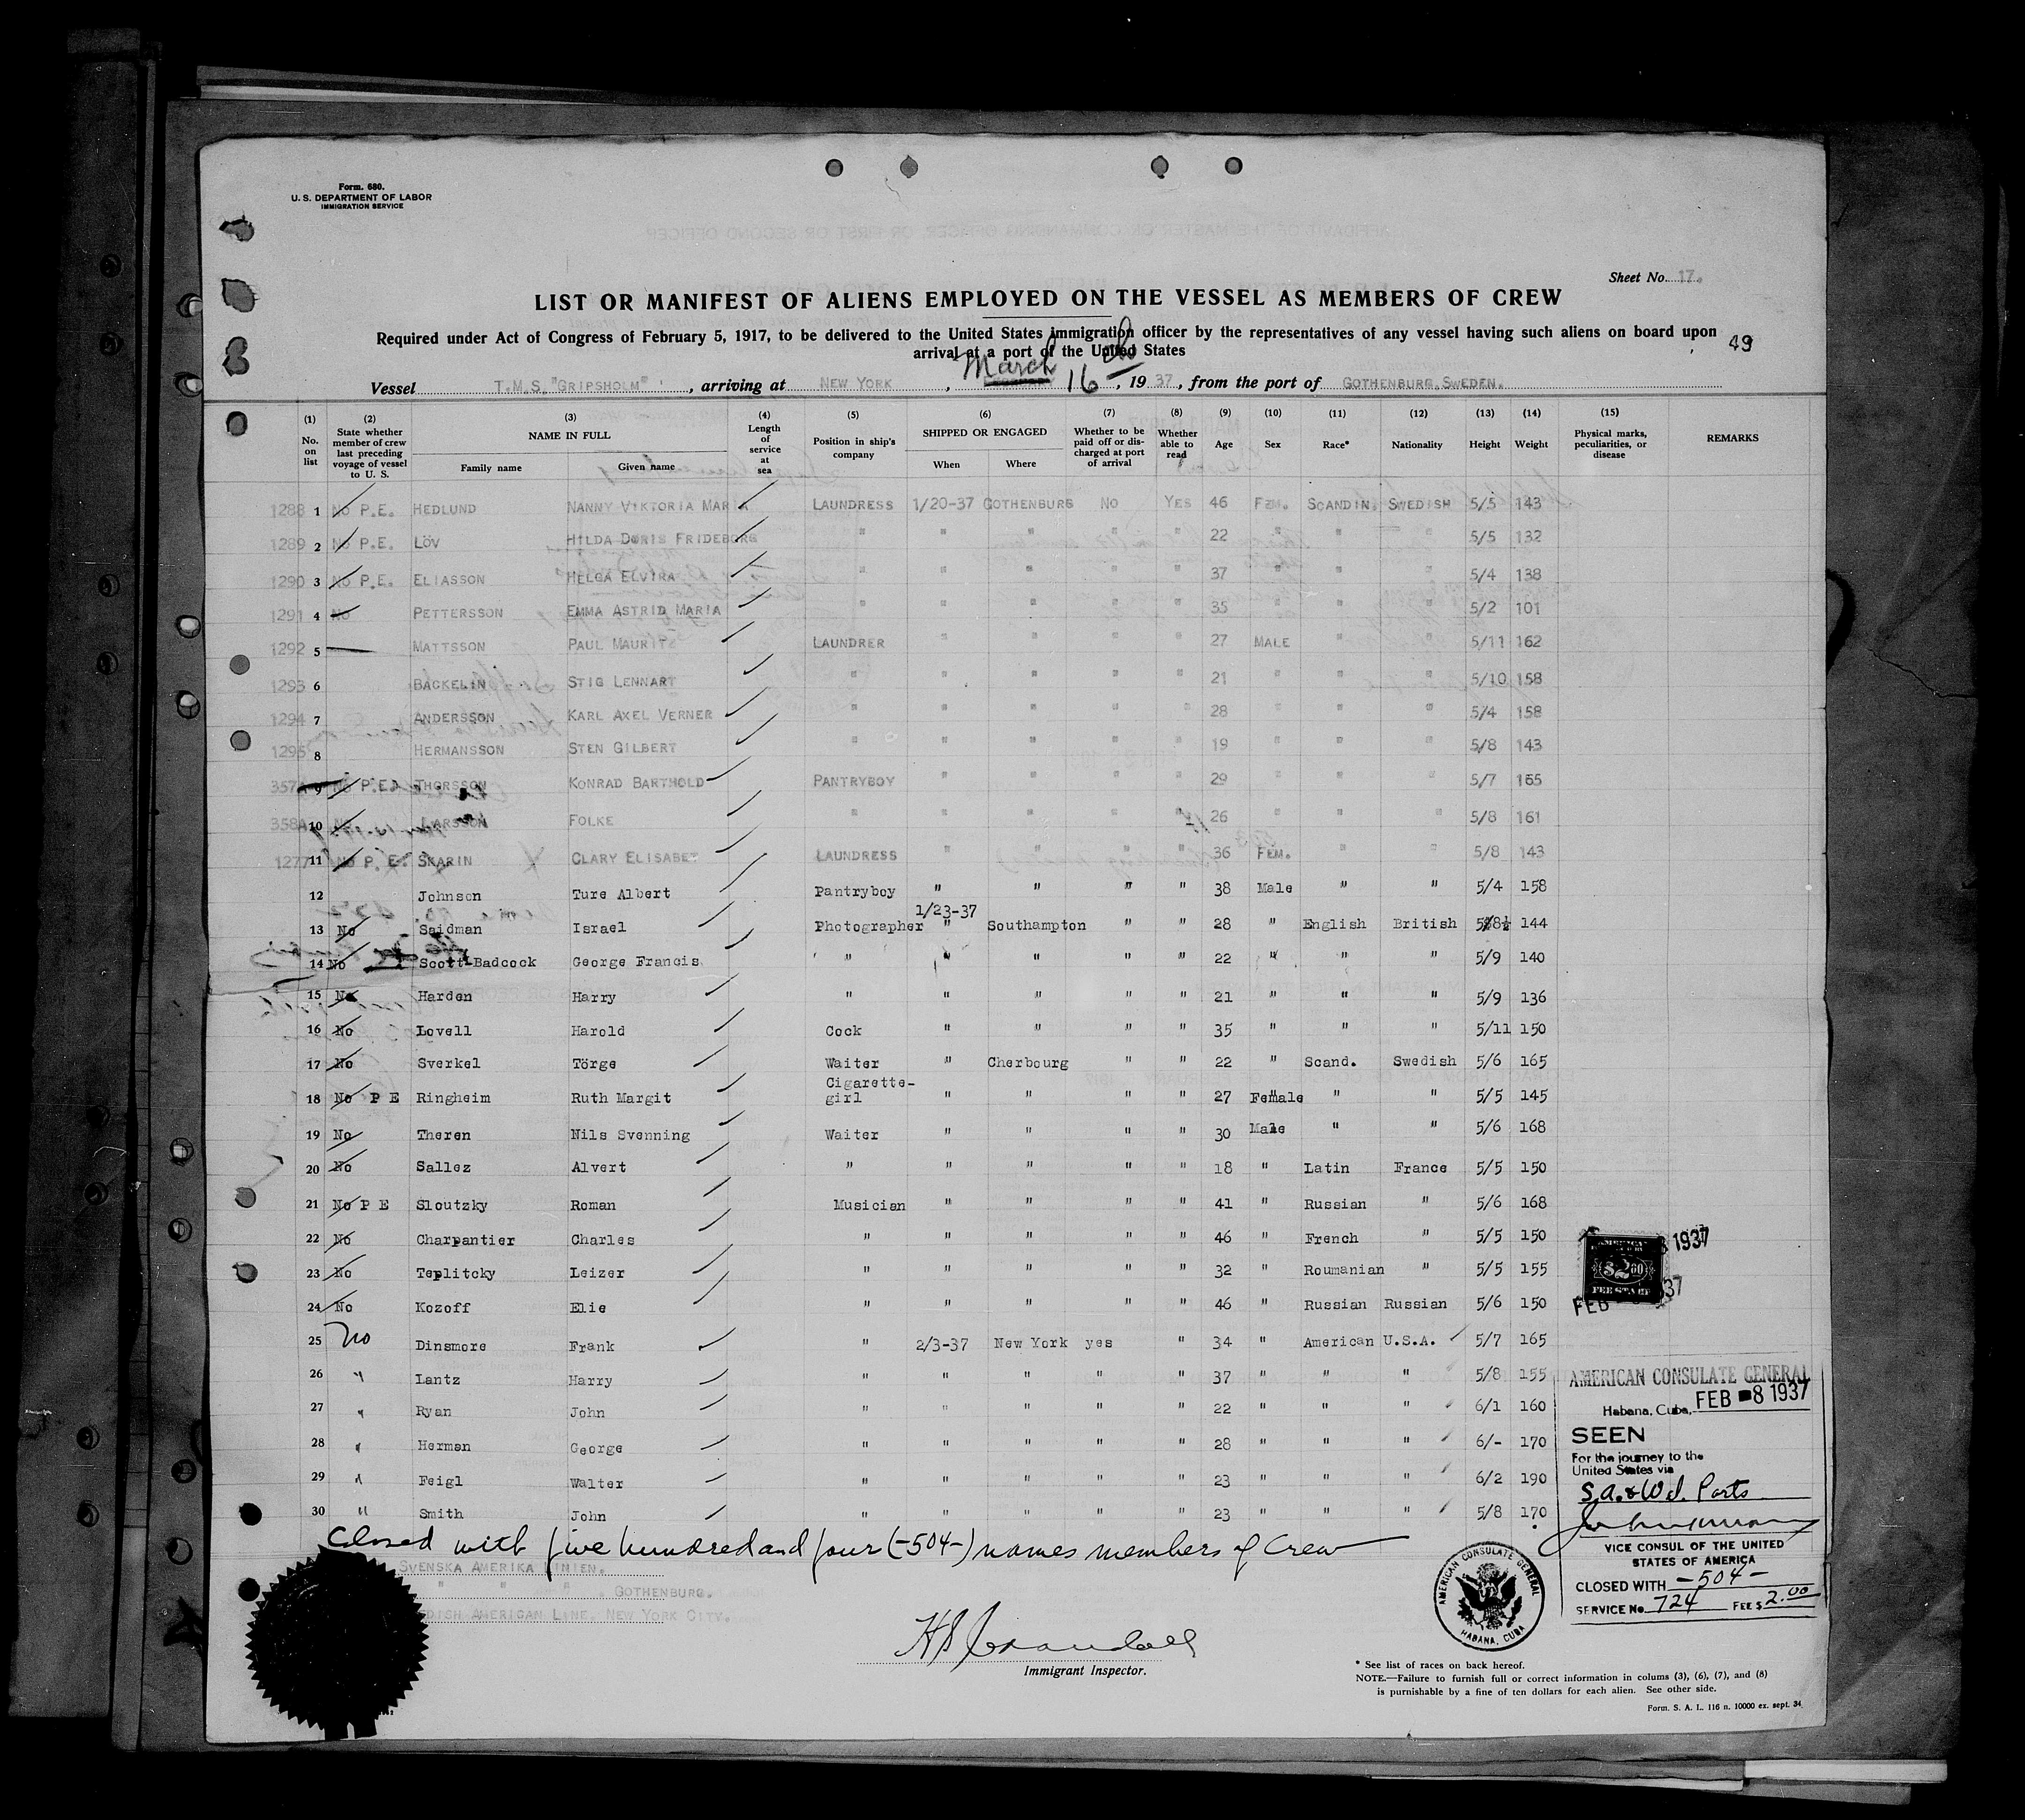 Form. 680.
U. S. DEPARTMENT OF LABOR
IMMIGRATION SERVICE
Sheet No. 17.
LIST OR MANIFEST OF ALIENS EMPLOYED ON THE VESSEL AS MEMBERS OF CREW
Required under Act of Congress of February 5, 1917, to be delivered to the United States immigration officer by the representatives of any vessel having such aliens on board upon
arrival at a port of the United States
49
Vessel T.M.S. "GRIPSHOLM" , arriving at NEW YORK , March 16 th , 19 37 , from the port of GOTHENBURG, SWEDEN.
(1) (2) (3) (4) (5) (6) (7) (8) (9) (10) (11) (12) (13) (14) (15)
No. on list State whether member of crew last preceding voyage of vessel to U. S. NAME IN FULL Family name Given name Length of service at sea Position in ship's company SHIPPED OR ENGAGED When Where Whether to be paid off or discharged at port of arrival Whether able to read Age Sex Race* Nationality Height Weight Physical marks, peculiarities, or disease REMARKS
1288 1 No P.E. HEDLUND NANNY VIKTORIA MARIA LAUNDRESS 1/20-37 GOTHENBURG NO YES 46 FEM. SCANDIN. SWEDISH 5/5 143
1289 2 No P.E. LÖV HILDA DORIS FRIDEBORG " " " " " 22 " " " 5/5 132
1290 3 No P.E. ELIASSON HELGA ELVIRA " " " " " 37 " " " 5/4 138
1291 4 No PETTERSSON EMMA ASTRID MARIA " " " " " 35 " " " 5/2 101
1292 5 MATTSSON PAUL MAURITS LAUNDRER " " " " 27 MALE " " 5/11 162
1293 6 BACKELIN STIG LENNART " " " " " 21 " " " 5/10 158
1294 7 ANDERSSON KARL AXEL VERNER " " " " " 28 " " " 5/4 158
1295 8 HERMANSSON STEN GILBERT " " " " " 19 " " " 5/8 143
357A 9 No P.E. THORSSON KONRAD BARTHOLD PANTRYBOY " " " " 29 " " " 5/7 165
358A 10 No LARSSON FOLKE " " " " " 26 " " " 5/8 161
1277 11 No P.E. SKARIN CLARY ELISABET LAUNDRESS " " " " 36 FEM. " " 5/8 143
12 Johnson Ture Albert Pantryboy " " " " 38 Male " " 5/4 158
1/23-37
13 No Seidman Israel Photographer " Southampton " " 28 " English British 5/8½ 144
14 No Scott-Badcock George Francis " " " " " 22 " " " 5/9 140
15 No Harden Harry " " " " " 21 " " " 5/9 136
16 No Lovell Harold Cock " " " " 35 " " " 5/11 150
17 No Sverkel Törge Waiter " Cherbourg " " 22 " Scand. Swedish 5/6 165
18 No P E Ringheim Ruth Margit Cigarette-girl " " " " 27 Female " " 5/5 145
19 No Theren Nils Svenning Waiter " " " " 30 Male " " 5/6 168
20 No Sallez Alvert " " " " " 18 " Latin France 5/5 150
21 No P E Sloutzky Roman Musician " " " " 41 " Russian " 5/6 168
22 No Charpantier Charles " " " " " 46 " French " 5/5 150
23 No Teplitcky Leizer " " " " " 32 " Roumanian " 5/5 155
24 No Kozoff Elie " " " " " 46 " Russian Russian 5/6 150
25 No Dinsmore Frank " 2/3-37 New York yes " 34 " American U.S.A. 5/7 165
26 " Lantz Harry " " " " " 37 " " " 5/8 155
27 " Ryan John " " " " " 22 " " " 6/1 160
28 " Herman George " " " " " 28 " " " 6/- 170
29 " Feigl Walter " " " " " 23 " " " 6/2 190
30 " Smith John " " " " " 23 " " " 5/8 170
AMERICAN
$2.00
FEE STAMP
1937
FEB
37
AMERICAN CONSULATE GENERAL
Habana, Cuba, FEB 8 1937
SEEN
For the journey to the
United States via
S.A. & W.I. Ports
VICE CONSUL OF THE UNITED
STATES OF AMERICA
CLOSED WITH -504-
SERVICE No. 724 FEE $ 2.00
Closed with five hundred and four (-504-) names members of Crew
SVENSKA AMERIKA LINIEN.
" " " , GOTHENBURG.
DISH AMERICAN LINE, NEW YORK CITY.
AMERICAN CONSULATE GENERAL
HABANA, CUBA
Immigrant Inspector.
* See list of races on back hereof.
NOTE.—Failure to furnish full or correct information in colums (3), (6), (7), and (8)
is punishable by a fine of ten dollars for each alien. See other side.
Form. S. A. L. 116 n. 10000 ex. sept. 34.